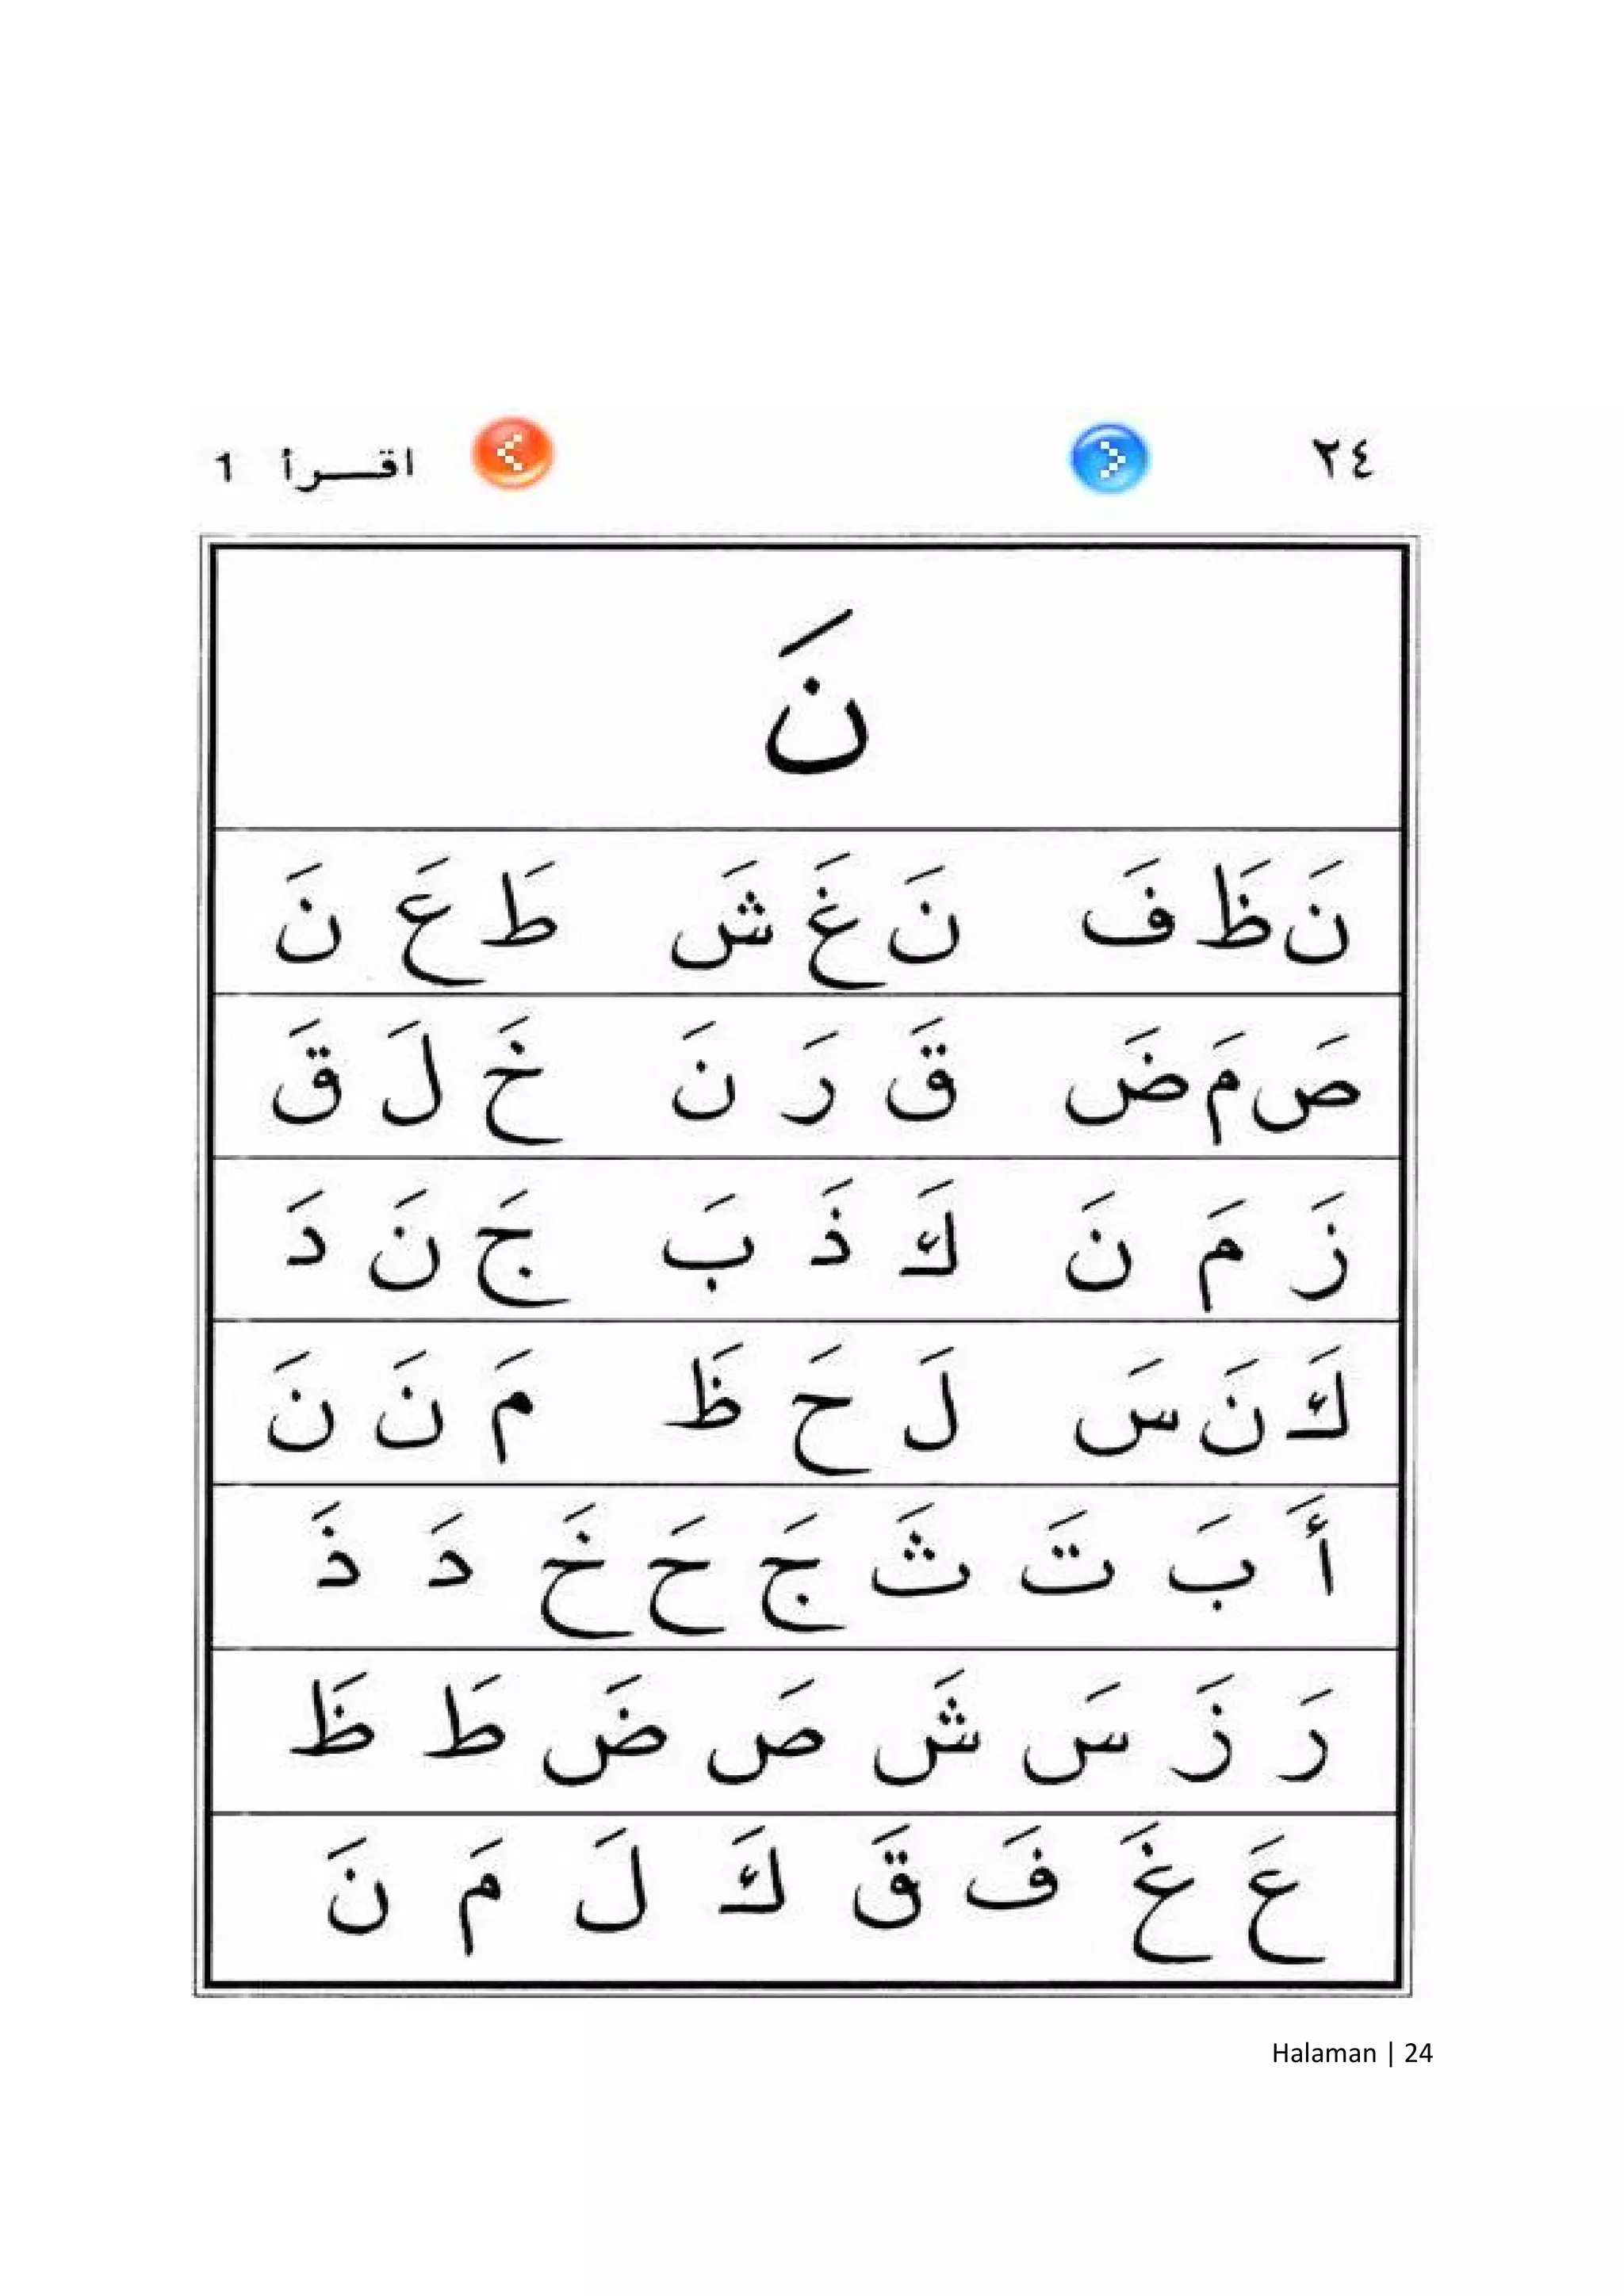 ٢٤ اقـــرأ 1
نَ
نَ ظَ فَ نَ غَ شَ طَ عَ نَ
صَ مَ ضَ قَ رَ نَ خَ لَ قَ
زَ مَ نَ كَ ذَ بَ جَ نَ دَ
كَ نَ سَ لَ حَ ظَ مَ نَ نَ
أَ بَ تَ ثَ جَ حَ خَ دَ ذَ
رَ زَ سَ شَ صَ ضَ طَ ظَ
عَ غَ فَ قَ كَ لَ مَ نَ
Halaman | 24